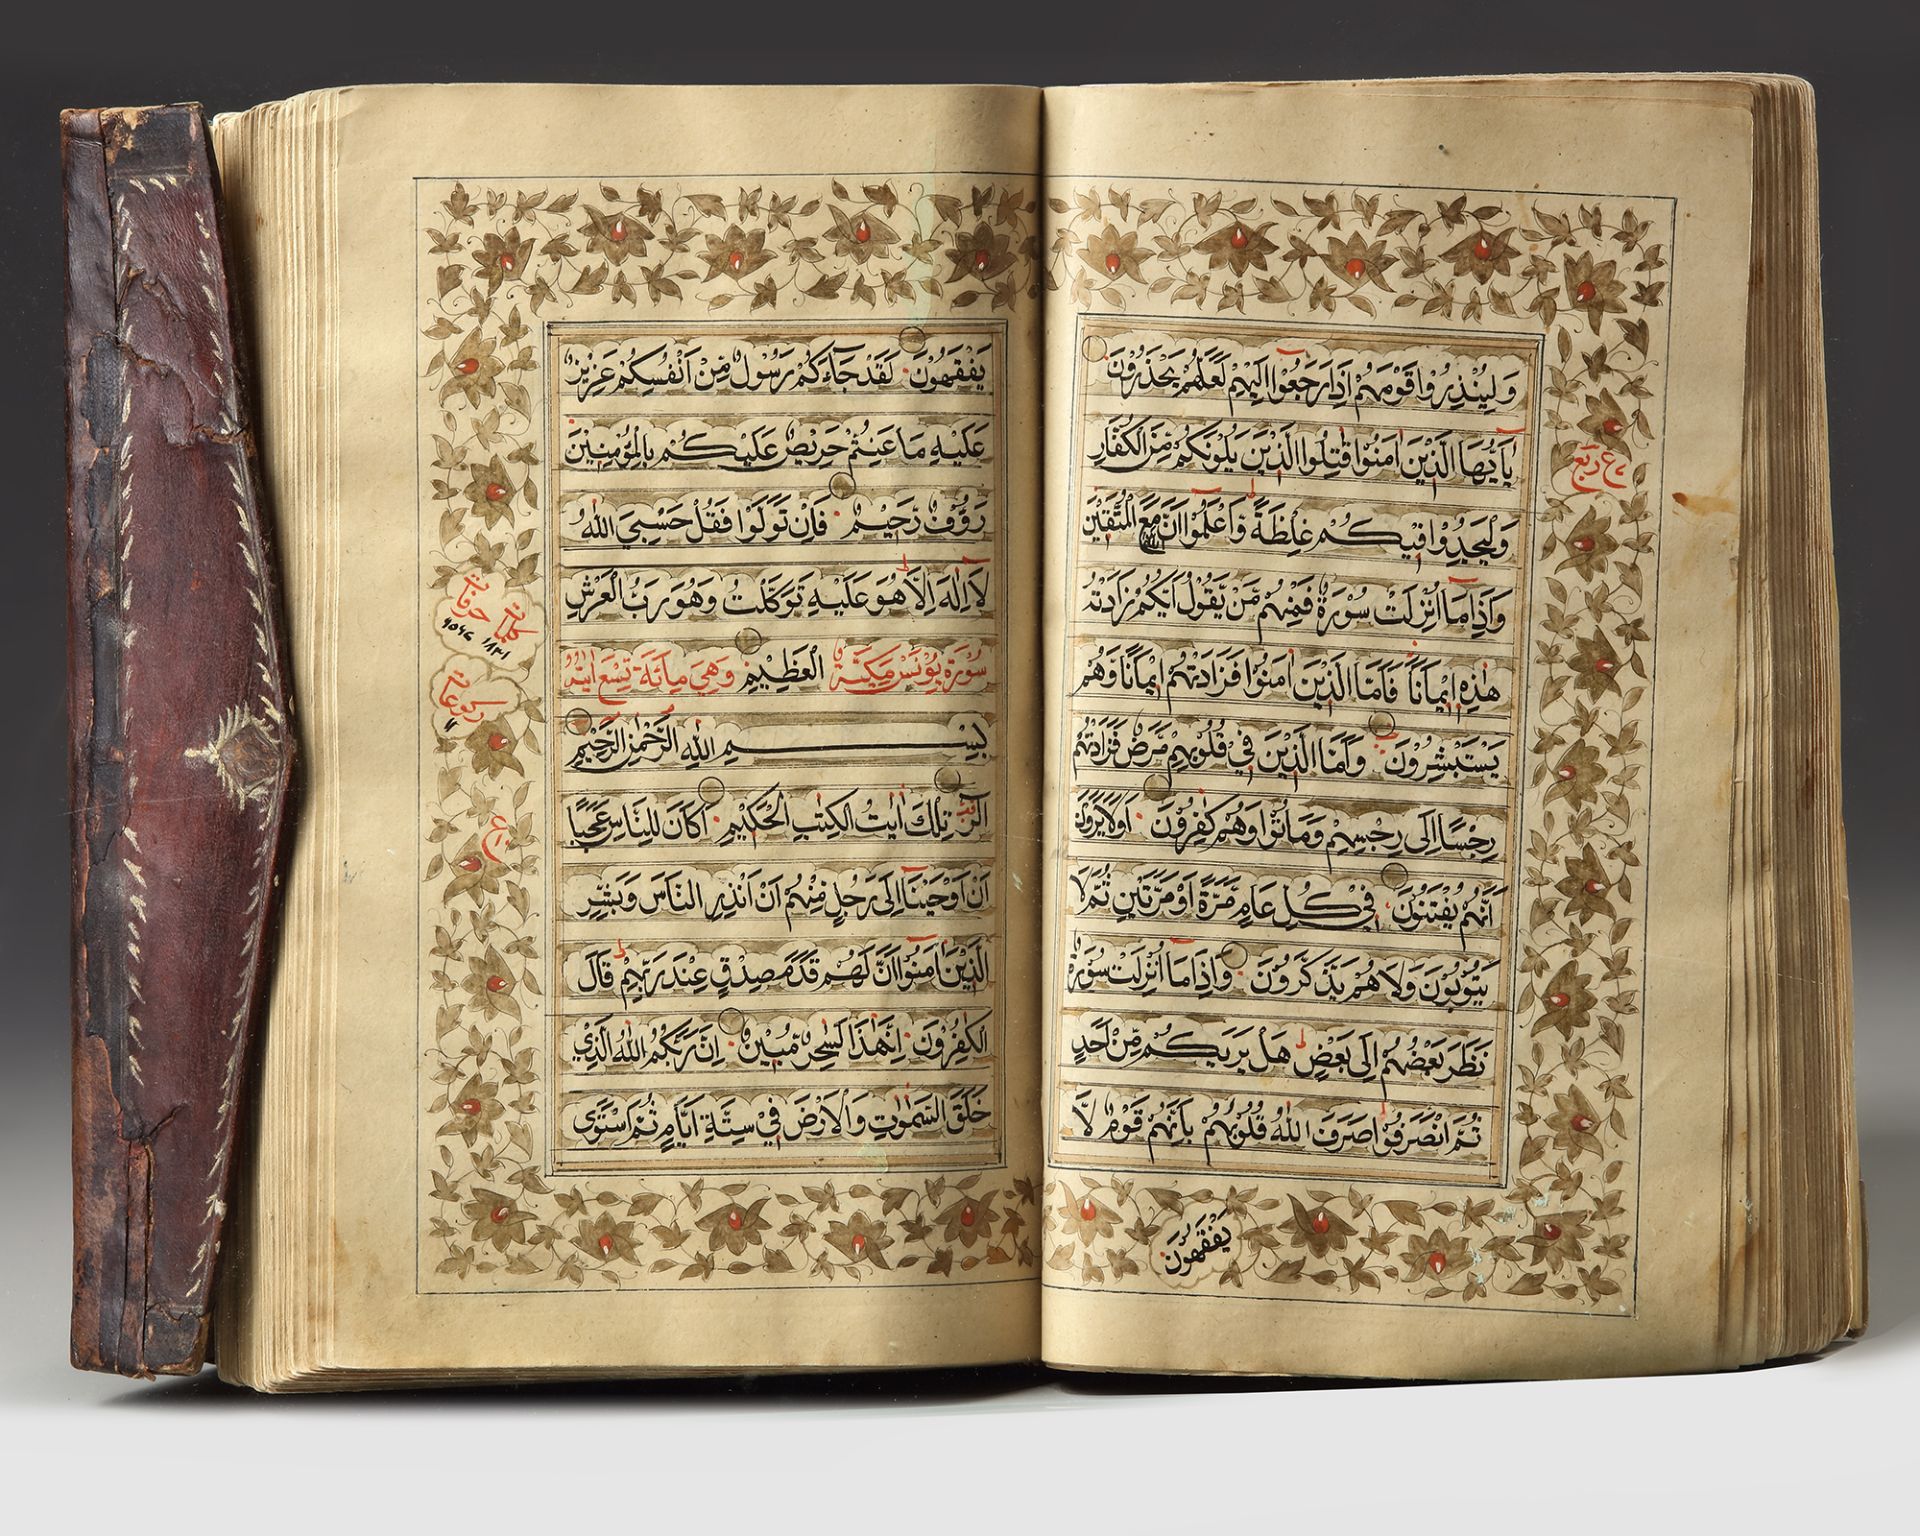 وَلِيُنْذِرُوْا قَوْمَهُمْ اِذَا رَجَعُوْۤا اِلَيْهِمْ لَعَلَّهُمْ يَحْذَرُوْنَ
يٰۤاَيُّهَا الَّذِيْنَ اٰمَنُوْا قَاتِلُوا الَّذِيْنَ يَلُوْنَكُمْ مِّنَ الْكُفَّارِ
وَلْيَجِدُوْا فِيْكُمْ غِلْظَةً ؕ وَاعْلَمُوْۤا اَنَّ اللّٰهَ مَعَ الْمُتَّقِيْنَ
وَاِذَا مَاۤ اُنْزِلَتْ سُوْرَةٌ فَمِنْهُمْ مَّنْ يَّقُوْلُ اَيُّكُمْ زَادَتْهُ
هٰذِهٖۤ اِيْمَانًا ۚ فَاَمَّا الَّذِيْنَ اٰمَنُوْا فَزَادَتْهُمْ اِيْمَانًا وَّهُمْ
يَسْتَبْشِرُوْنَ وَاَمَّا الَّذِيْنَ فِيْ قُلُوْبِهِمْ مَّرَضٌ فَزَادَتْهُمْ
رِجْسًا اِلٰى رِجْسِهِمْ وَمَاتُوْا وَهُمْ كٰفِرُوْنَ اَوَلَا يَرَوْنَ
اَنَّهُمْ يُفْتَنُوْنَ فِيْ كُلِّ عَامٍ مَّرَّةً اَوْ مَرَّتَيْنِ ثُمَّ لَا
يَتُوْبُوْنَ وَلَا هُمْ يَذَّكَّرُوْنَ وَاِذَا مَاۤ اُنْزِلَتْ سُوْرَةٌ
نَّظَرَ بَعْضُهُمْ اِلٰى بَعْضٍ ؕ هَلْ يَرٰىكُمْ مِّنْ اَحَدٍ
ثُمَّ انْصَرَفُوْا ؕ صَرَفَ اللّٰهُ قُلُوْبَهُمْ بِاَنَّهُمْ قَوْمٌ لَّا
يَفْقَهُوْنَ
ربع
يَفْقَهُوْنَ لَقَدْ جَآءَكُمْ رَسُوْلٌ مِّنْ اَنْفُسِكُمْ عَزِيْزٌ
عَلَيْهِ مَا عَنِتُّمْ حَرِيْصٌ عَلَيْكُمْ بِالْمُؤْمِنِيْنَ
رَءُوْفٌ رَّحِيْمٌ فَاِنْ تَوَلَّوْا فَقُلْ حَسْبِيَ اللّٰهُ
لَاۤ اِلٰهَ اِلَّا هُوَ ؕ عَلَيْهِ تَوَكَّلْتُ وَهُوَ رَبُّ الْعَرْشِ
سُوْرَةُ يُوْنُسَ مَكِّيَّةٌ الْعَظِيْمِ وَهِيَ مِائَةٌ تِسْعُ اٰيٰة
بِسْمِ اللّٰهِ الرَّحْمٰنِ الرَّحِيْمِ
الٓرٰ تِلْكَ اٰيٰتُ الْكِتٰبِ الْحَكِيْمِ اَكَانَ لِلنَّاسِ عَجَبًا
اَنْ اَوْحَيْنَاۤ اِلٰى رَجُلٍ مِّنْهُمْ اَنْ اَنْذِرِ النَّاسَ وَبَشِّرِ
الَّذِيْنَ اٰمَنُوْۤا اَنَّ لَهُمْ قَدَمَ صِدْقٍ عِنْدَ رَبِّهِمْ ؕ قَالَ
الْكٰفِرُوْنَ اِنَّ هٰذَا لَسٰحِرٌ مُّبِيْنٌ اِنَّ رَبَّكُمُ اللّٰهُ الَّذِيْ
خَلَقَ السَّمٰوٰتِ وَالْاَرْضَ فِيْ سِتَّةِ اَيَّامٍ ثُمَّ اسْتَوٰى
كلمات حرفات
ركوعات